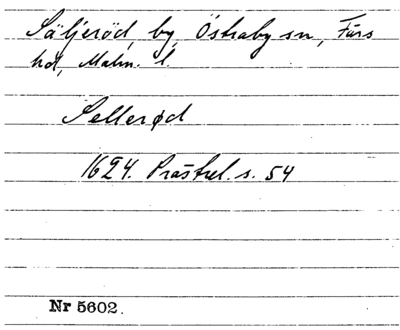 Säljeröd, by, Östraby sn, Färs
hd, Malm. l.
Sellerød
1624. Prästrel. s. 54
Nr 5602.